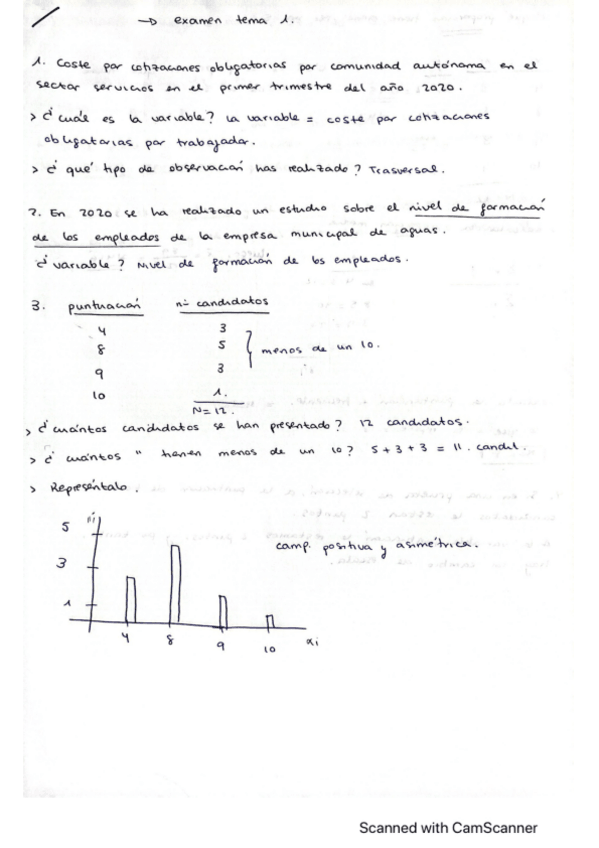 → examen tema 1.
1. Coste por cotizaciones obligatorias por comunidad autónoma en el
sector servicios en el primer trimestre del año 2020.
> ¿cuál es la variable? La variable = coste por cotizaciones
obligatorias por trabajador.
> ¿qué tipo de observación has realizado? Trasversal.
2. En 2020 se ha realizado un estudio sobre el nivel de formación
de los empleados de la empresa municipal de aguas.
¿variable? Nivel de formación de los empleados.
3. puntuación nº candidatos
4 3
8 5
9 3
menos de un 10.
10 1.
N=12.
> ¿cuántos candidatos se han presentado? 12 candidatos.
> ¿cuántos " tienen menos de un 10? 5+3+3 = 11. candid.
> Represéntalo.
ni
5
3
1
4 8 9 10 xi
camp. positiva y asimétrica.
Scanned with CamScanner